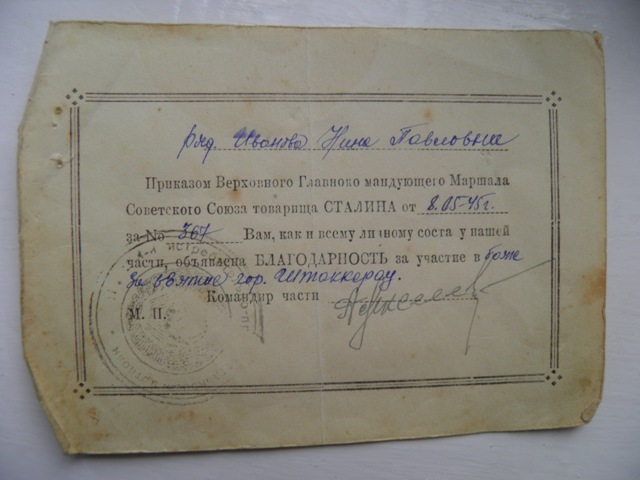 ряд. Иванова Нине Павловне
Приказом Верховного Главноко мандующего Маршала
Советского Союза товарища СТАЛИНА от 8.05-45г.
за № 367 Вам, как и всему личному соста у нашей
части, объявлена БЛАГОДАРНОСТЬ за участие в боях
за взятие гор. Штоккерау.
Командир части
М. П.